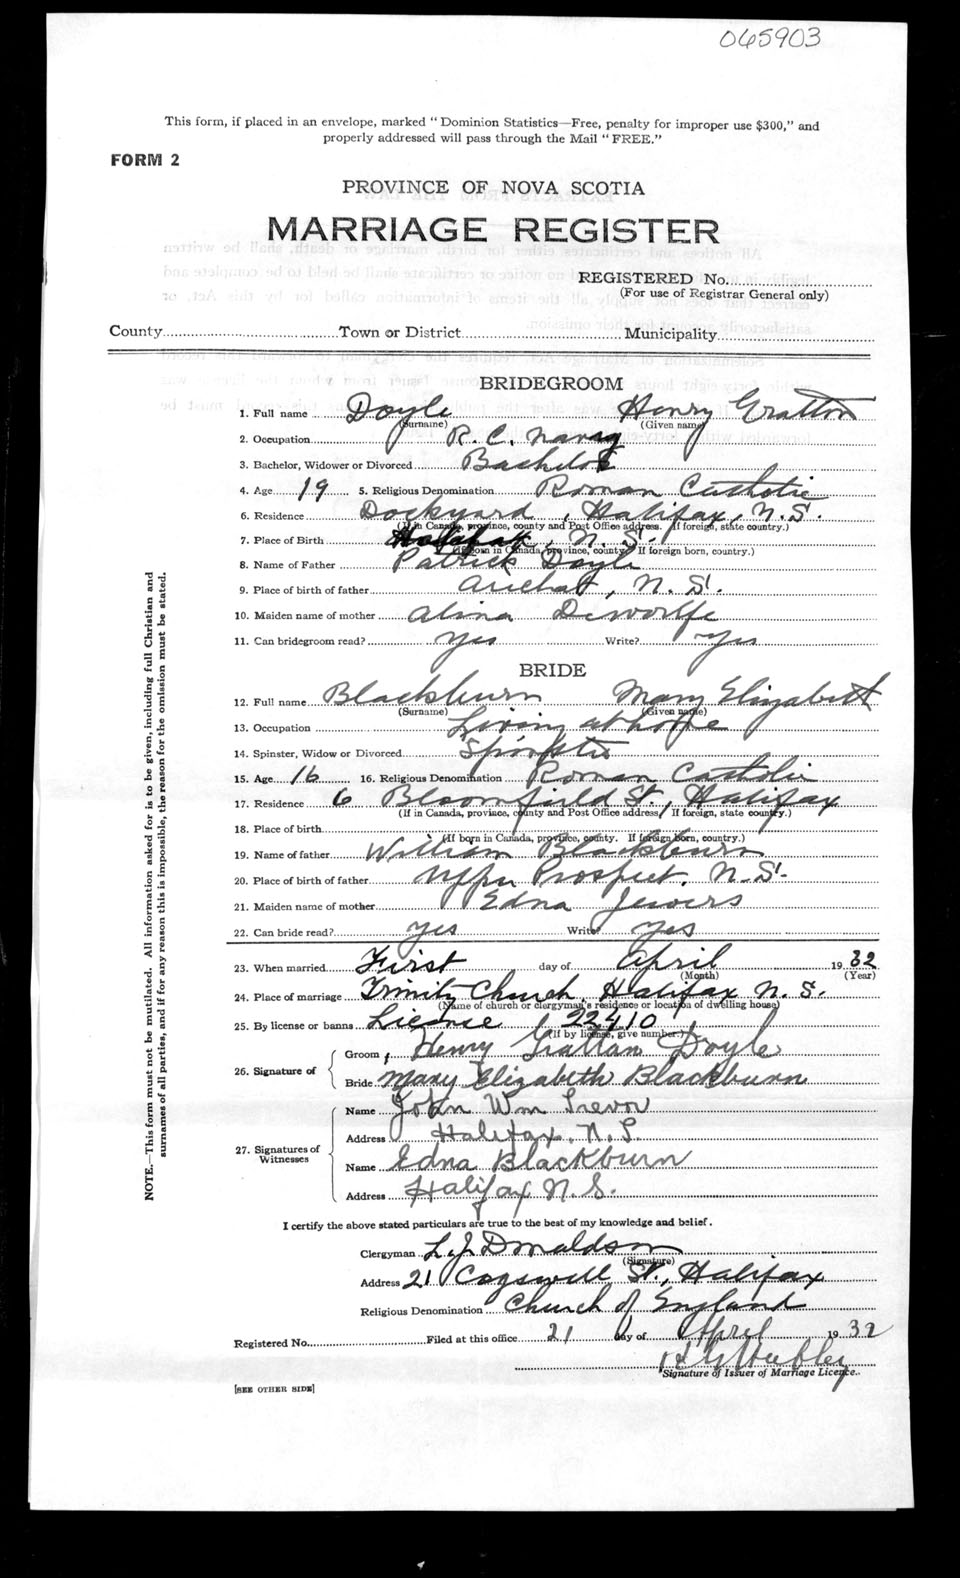 065903
This form, if placed in an envelope, marked "Dominion Statistics—Free, penalty for improper use $300," and
properly addressed will pass through the Mail "FREE."
FORM 2
PROVINCE OF NOVA SCOTIA
MARRIAGE REGISTER
REGISTERED No.
(For use of Registrar General only)
County Town or District Municipality
BRIDEGROOM
1. Full name Doyle Henry Grattan
(Surname) (Given name)
2. Occupation R. C. Navay
3. Bachelor, Widower or Divorced Bachelor
4. Age 19 5. Religious Denomination Roman Catholic
6. Residence Dockyard, Halifax, N.S.
(If in Canada, province, county and Post Office address. If foreign, state country.)
7. Place of Birth Halifax, N.S.
(If born in Canada, province, county. If foreign born, country.)
8. Name of Father Patrick Doyle
9. Place of birth of father Arichat, N.S.
10. Maiden name of mother Alina Dewolfe
11. Can bridegroom read? Yes Write? Yes
BRIDE
12. Full name Blackburn Mary Elizabeth
(Surname) (Given name)
13. Occupation Living at home
14. Spinster, Widow or Divorced Spinster
15. Age 16 16. Religious Denomination Roman Catholic
17. Residence 6 Bloomfield St., Halifax
(If in Canada, province, county and Post Office address. If foreign, state country.)
18. Place of birth
(If born in Canada, province, county. If foreign born, country.)
19. Name of father William Blackburn
20. Place of birth of father Upper Prospect, N.S.
21. Maiden name of mother Edna Jewers
22. Can bride read? Yes Write? Yes
23. When married First day of April 1932
(Month) (Year)
24. Place of marriage Trinity Church, Halifax N.S.
(Name of church or clergyman's residence or location of dwelling house)
25. By license or banns Licence 22410
(If by license, give number.)
26. Signature of
Groom Henry Grattan Doyle
Bride Mary Elizabeth Blackburn
27. Signatures of Witnesses
Name John Wm Trevor
Address Halifax. N.S.
Name Edna Blackburn
Address Halifax N.S.
I certify the above stated particulars are true to the best of my knowledge and belief.
Clergyman L. J. Donaldson
(Signature)
Address 21 Cogswell St., Halifax
Religious Denomination Church of England
Registered No. Filed at this office 21 day of April 1932
Hubley
Signature of Issuer of Marriage Licence.
[SEE OTHER SIDE]
NOTE.—This form must not be mutilated. All information asked for is to be given, including full Christian and
surnames of all parties, and if for any reason this is impossible, the reason for the omission must be stated.